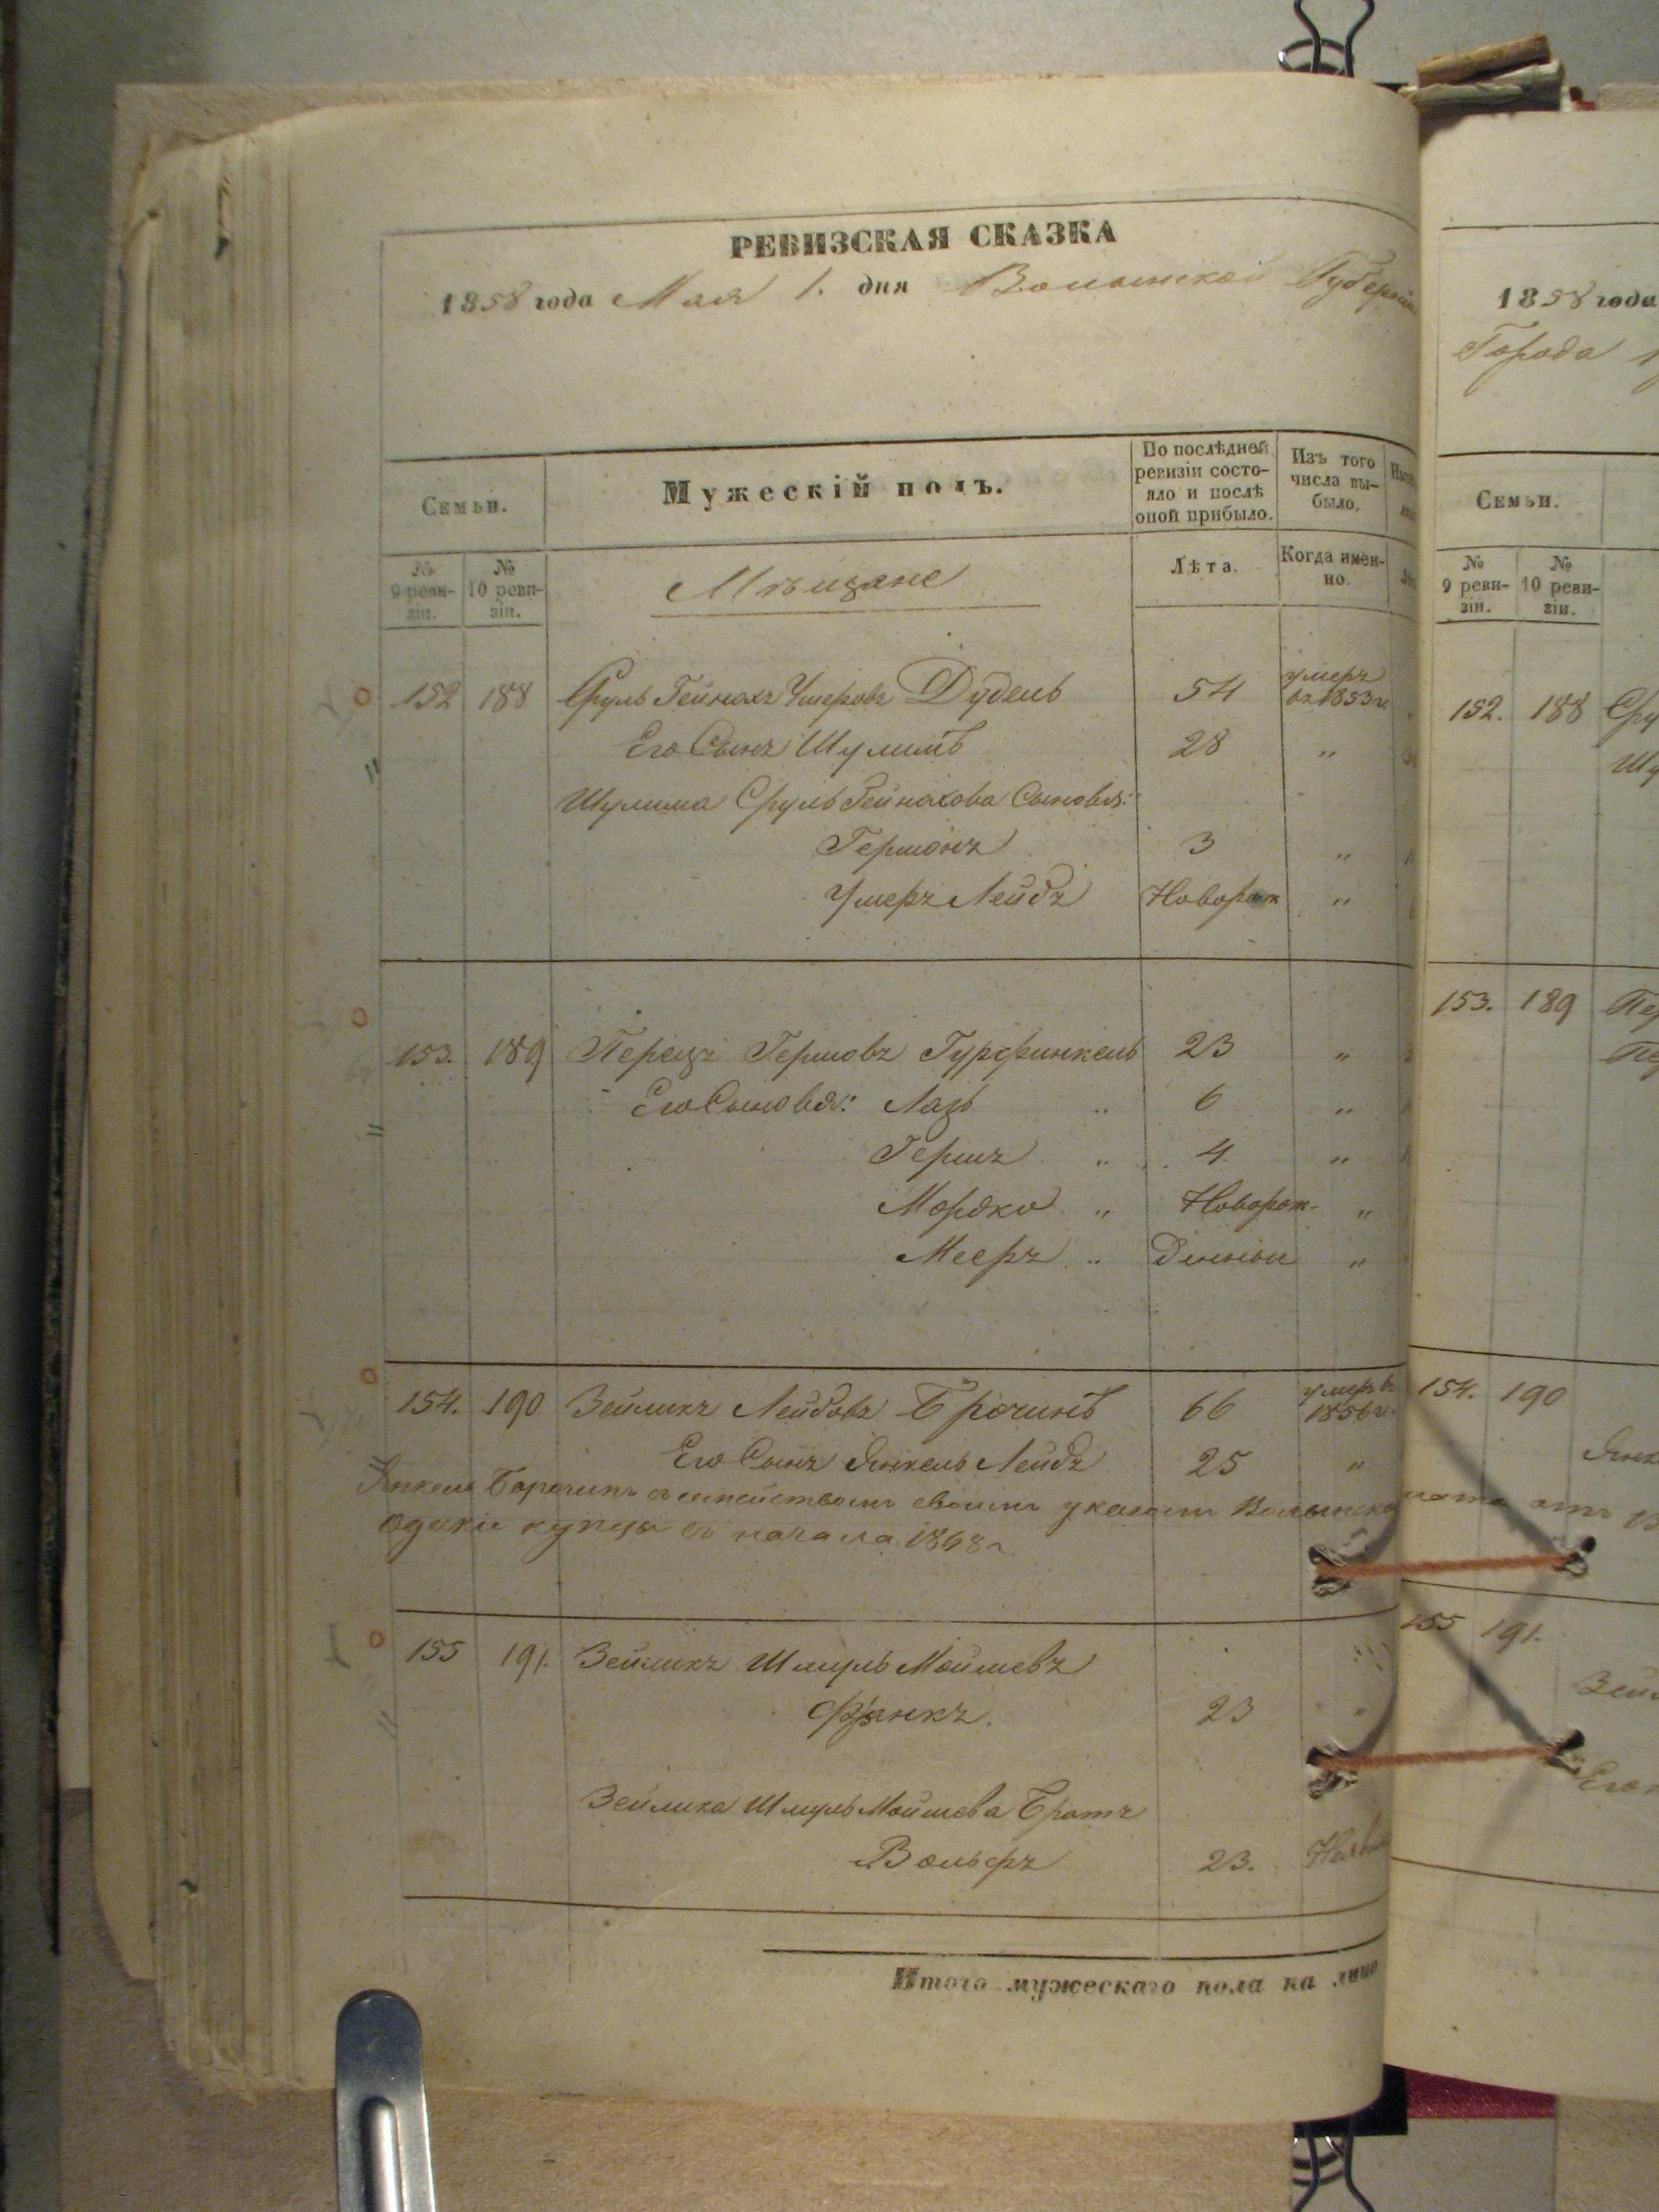 РЕВИЗСКАЯ СКАЗКА
1858 года Мая 1. дня Волынской Губерніи
Семьи.
Мужескій полъ.
По послѣдней ревизіи состояло и послѣ оной прибыло.
Изъ того числа выбыло.
№ 9 реви-зіи.
№ 10 реви-зіи.
Мѣщане
Лѣта.
Когда имен-но.
152 188 Сруль Гейнахъ Умеровъ Дудель 54 умеръ въ 1853 г.
Его Сынъ Шулимъ 28 "
Шулима Сруль Гейнахова Сыновья:
Гершонъ 3 "
Умеръ Лейбъ Новорож "
153. 189 Перецъ Гершовъ Гурфинкель 23 "
Его Сыновья: Лазь " 6 "
Гершъ " 4 "
Мордко " Новорож- "
Мееръ " денныи "
154. 190 Зейликъ Лейбовъ Брочинъ 66 умеръ въ 1856 г.
Его Сынъ Янкель Лейбъ 25 "
Янкель Борочинъ съ семействомъ своимъ указомъ
купцы съ начала 1868 г
155 191. Зейликъ Шмуль Мошевъ
Франкъ. 23 "
Зейлика Шмуль Мошева Братъ
Вольфъ 23.
Итого мужескаго пола на лицо
1858 года
Города
Семьи.
№ 9 реви-зіи.
№ 10 реви-зіи.
152. 188 Сру
Шу
153. 189 Пер
154. 190
Янк
155 191.
Зей
Его